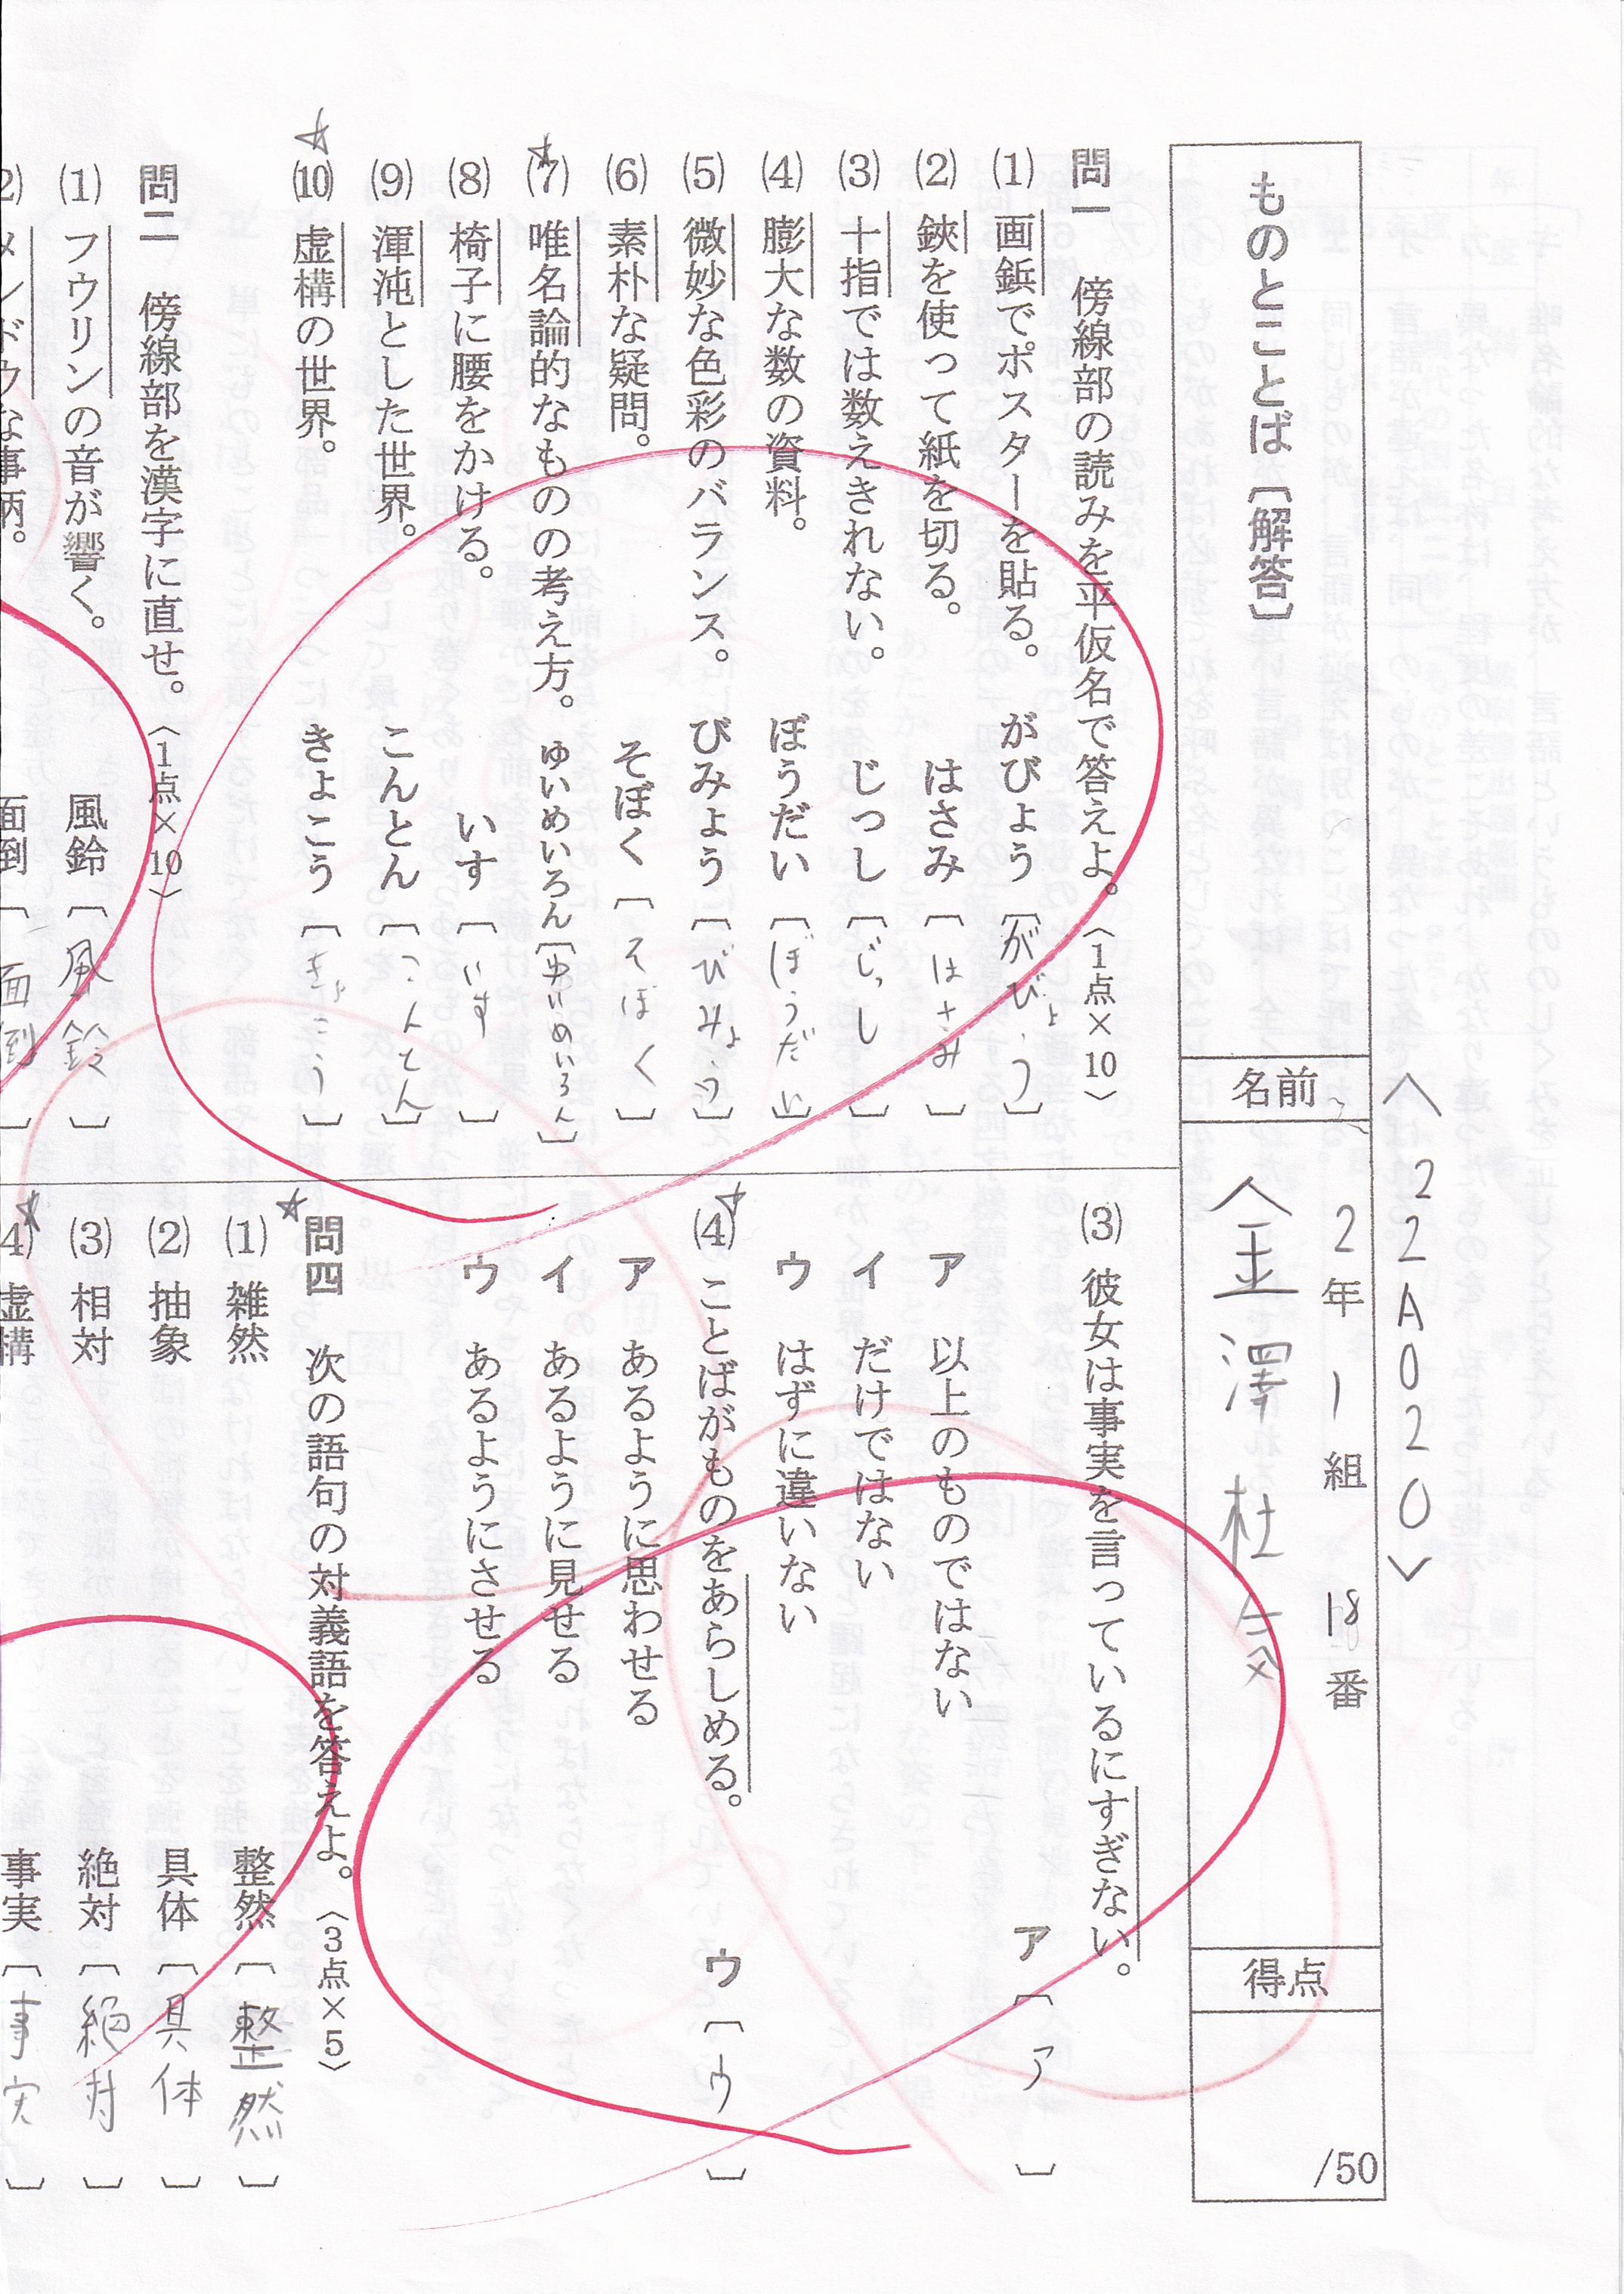 〈22A020〉
ものとことば〔解答〕
名前
2年 1組 18番
金澤 杜
得点
/50
問一 傍線部の読みを平仮名で答えよ。〈1点×10〉
(1) 画鋲でポスターを貼る。 がびょう〔がびょう〕
(2) 鋏を使って紙を切る。 はさみ〔はさみ〕
(3) 十指では数えきれない。 じっし〔じっし〕
(4) 膨大な数の資料。 ぼうだい〔ぼうだい〕
(5) 微妙な色彩のバランス。 びみょう〔びみょう〕
(6) 素朴な疑問。 そぼく〔そぼく〕
☆(7) 唯名論的なものの考え方。 ゆいめいろん〔ゆいめいろん〕
(8) 椅子に腰をかける。 いす〔いす〕
(9) 渾沌とした世界。 こんとん〔こんとん〕
☆(10) 虚構の世界。 きょこう〔きょこう〕
問二 傍線部を漢字に直せ。〈1点×10〉
(1) フウリンの音が響く。 風鈴〔風鈴〕
(2) メンドウな事柄。 面倒〔面倒〕
(3) 彼女は事実を言っているにすぎない。
ア 以上のものではない
イ だけではない
ウ はずに違いない
ア〔ア〕
☆(4) ことばがものをあらしめる。
ア あるように思わせる
イ あるように見せる
ウ あるようにさせる
ウ〔ウ〕
☆問四 次の語句の対義語を答えよ。〈3点×5〉
(1) 雑然 整然〔整然〕
(2) 抽象 具体〔具体〕
(3) 相対 絶対〔絶対〕
☆(4) 虚構 事実〔事実〕